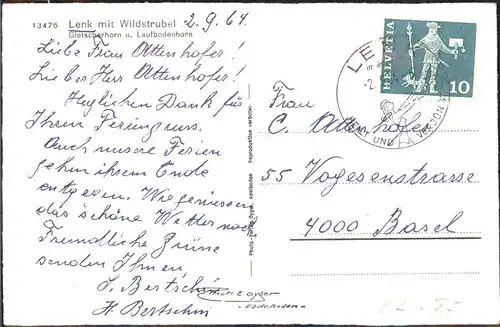 13476 Lenk mit Wildstrubel
Gletscherhorn u. Laufbodenhorn
2.9.64.
Liebe Frau Attenhofer!
Lieber Herr Attenhofer!
Herzlichen Dank für
Ihren Feriengruss.
Auch unsere Ferien
gehen ihrem Ende
entgegen. Wir geniessen
das schöne Wetter noch
Freundliche Grüsse
senden Ihnen
S. Bertschi
H. Bertschi
Reproduktion verboten
HELVETIA
10
LE
UND
Frau
C. Attenhofer
55 Vogesenstrasse
4000 Basel